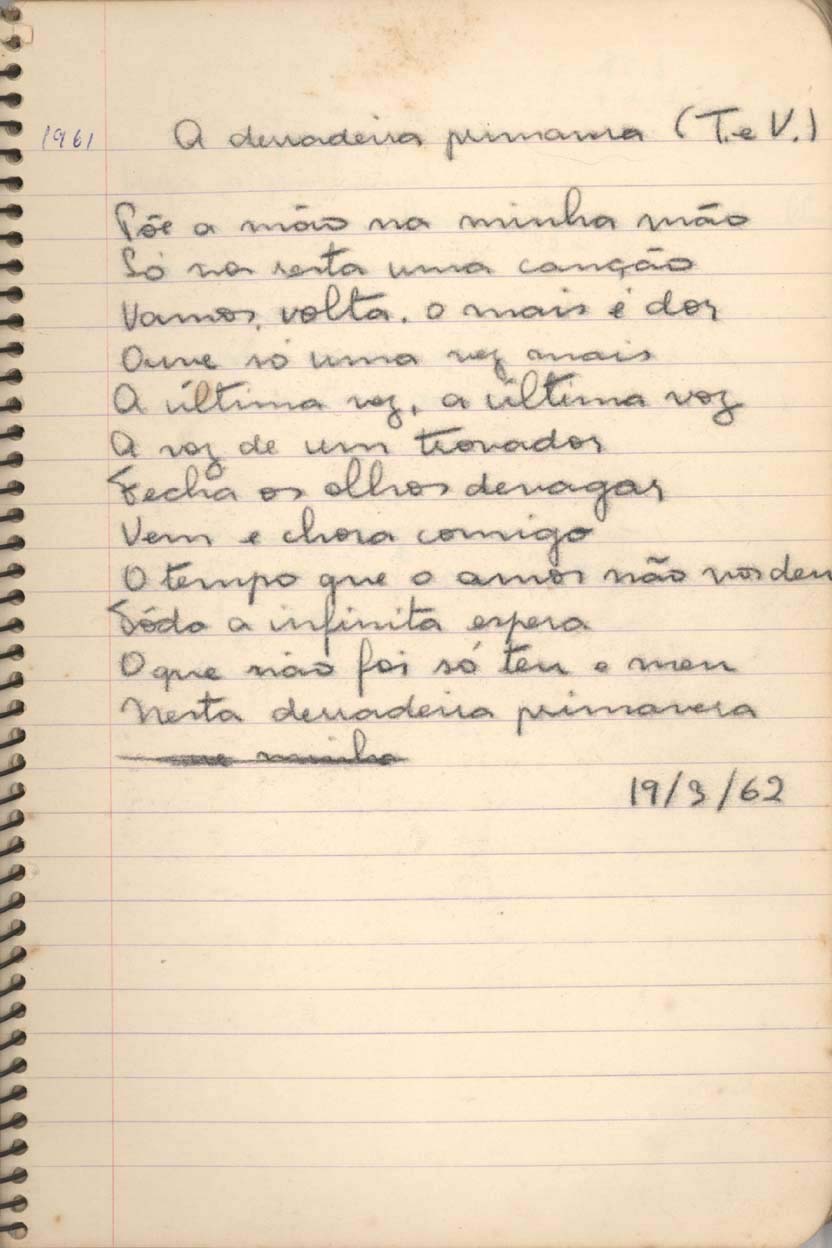 1961 A derradeira primavera (T. e V.)
Põe a mão na minha mão
Só nos resta uma canção
Vamos, volta, o mais é dor
Ouve só uma vez mais
A última vez, a última voz
A voz de um trovador
Fecha os olhos devagar
Vem e chora comigo
O tempo que o amor não nos deu
Tôda a infinita espera
O que não foi só teu e meu
Nesta derradeira primavera
minha
19/3/62